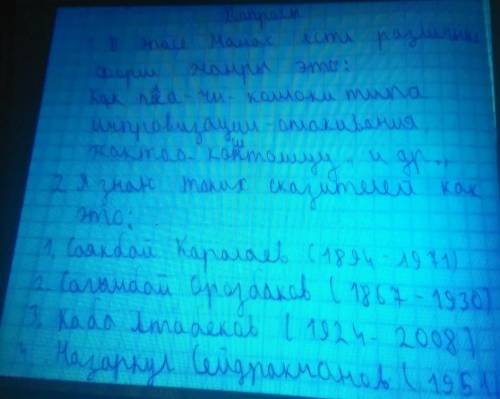 Вопросы
1. В эпосе Манас есть различные
формы жанры это:
Как плач-кошоки типа
импровизации-оплакивания,
жоктоо- кошомшуу и др..
2. Я знаю таких сказителей как
это:
1. Саякбай Каралаев (1894-1971)
2. Сагымбай Орозбаков (1867-1930)
3. Каба Атабеков (1924-2008)
4. Назаркул Сейдракманов (1951)